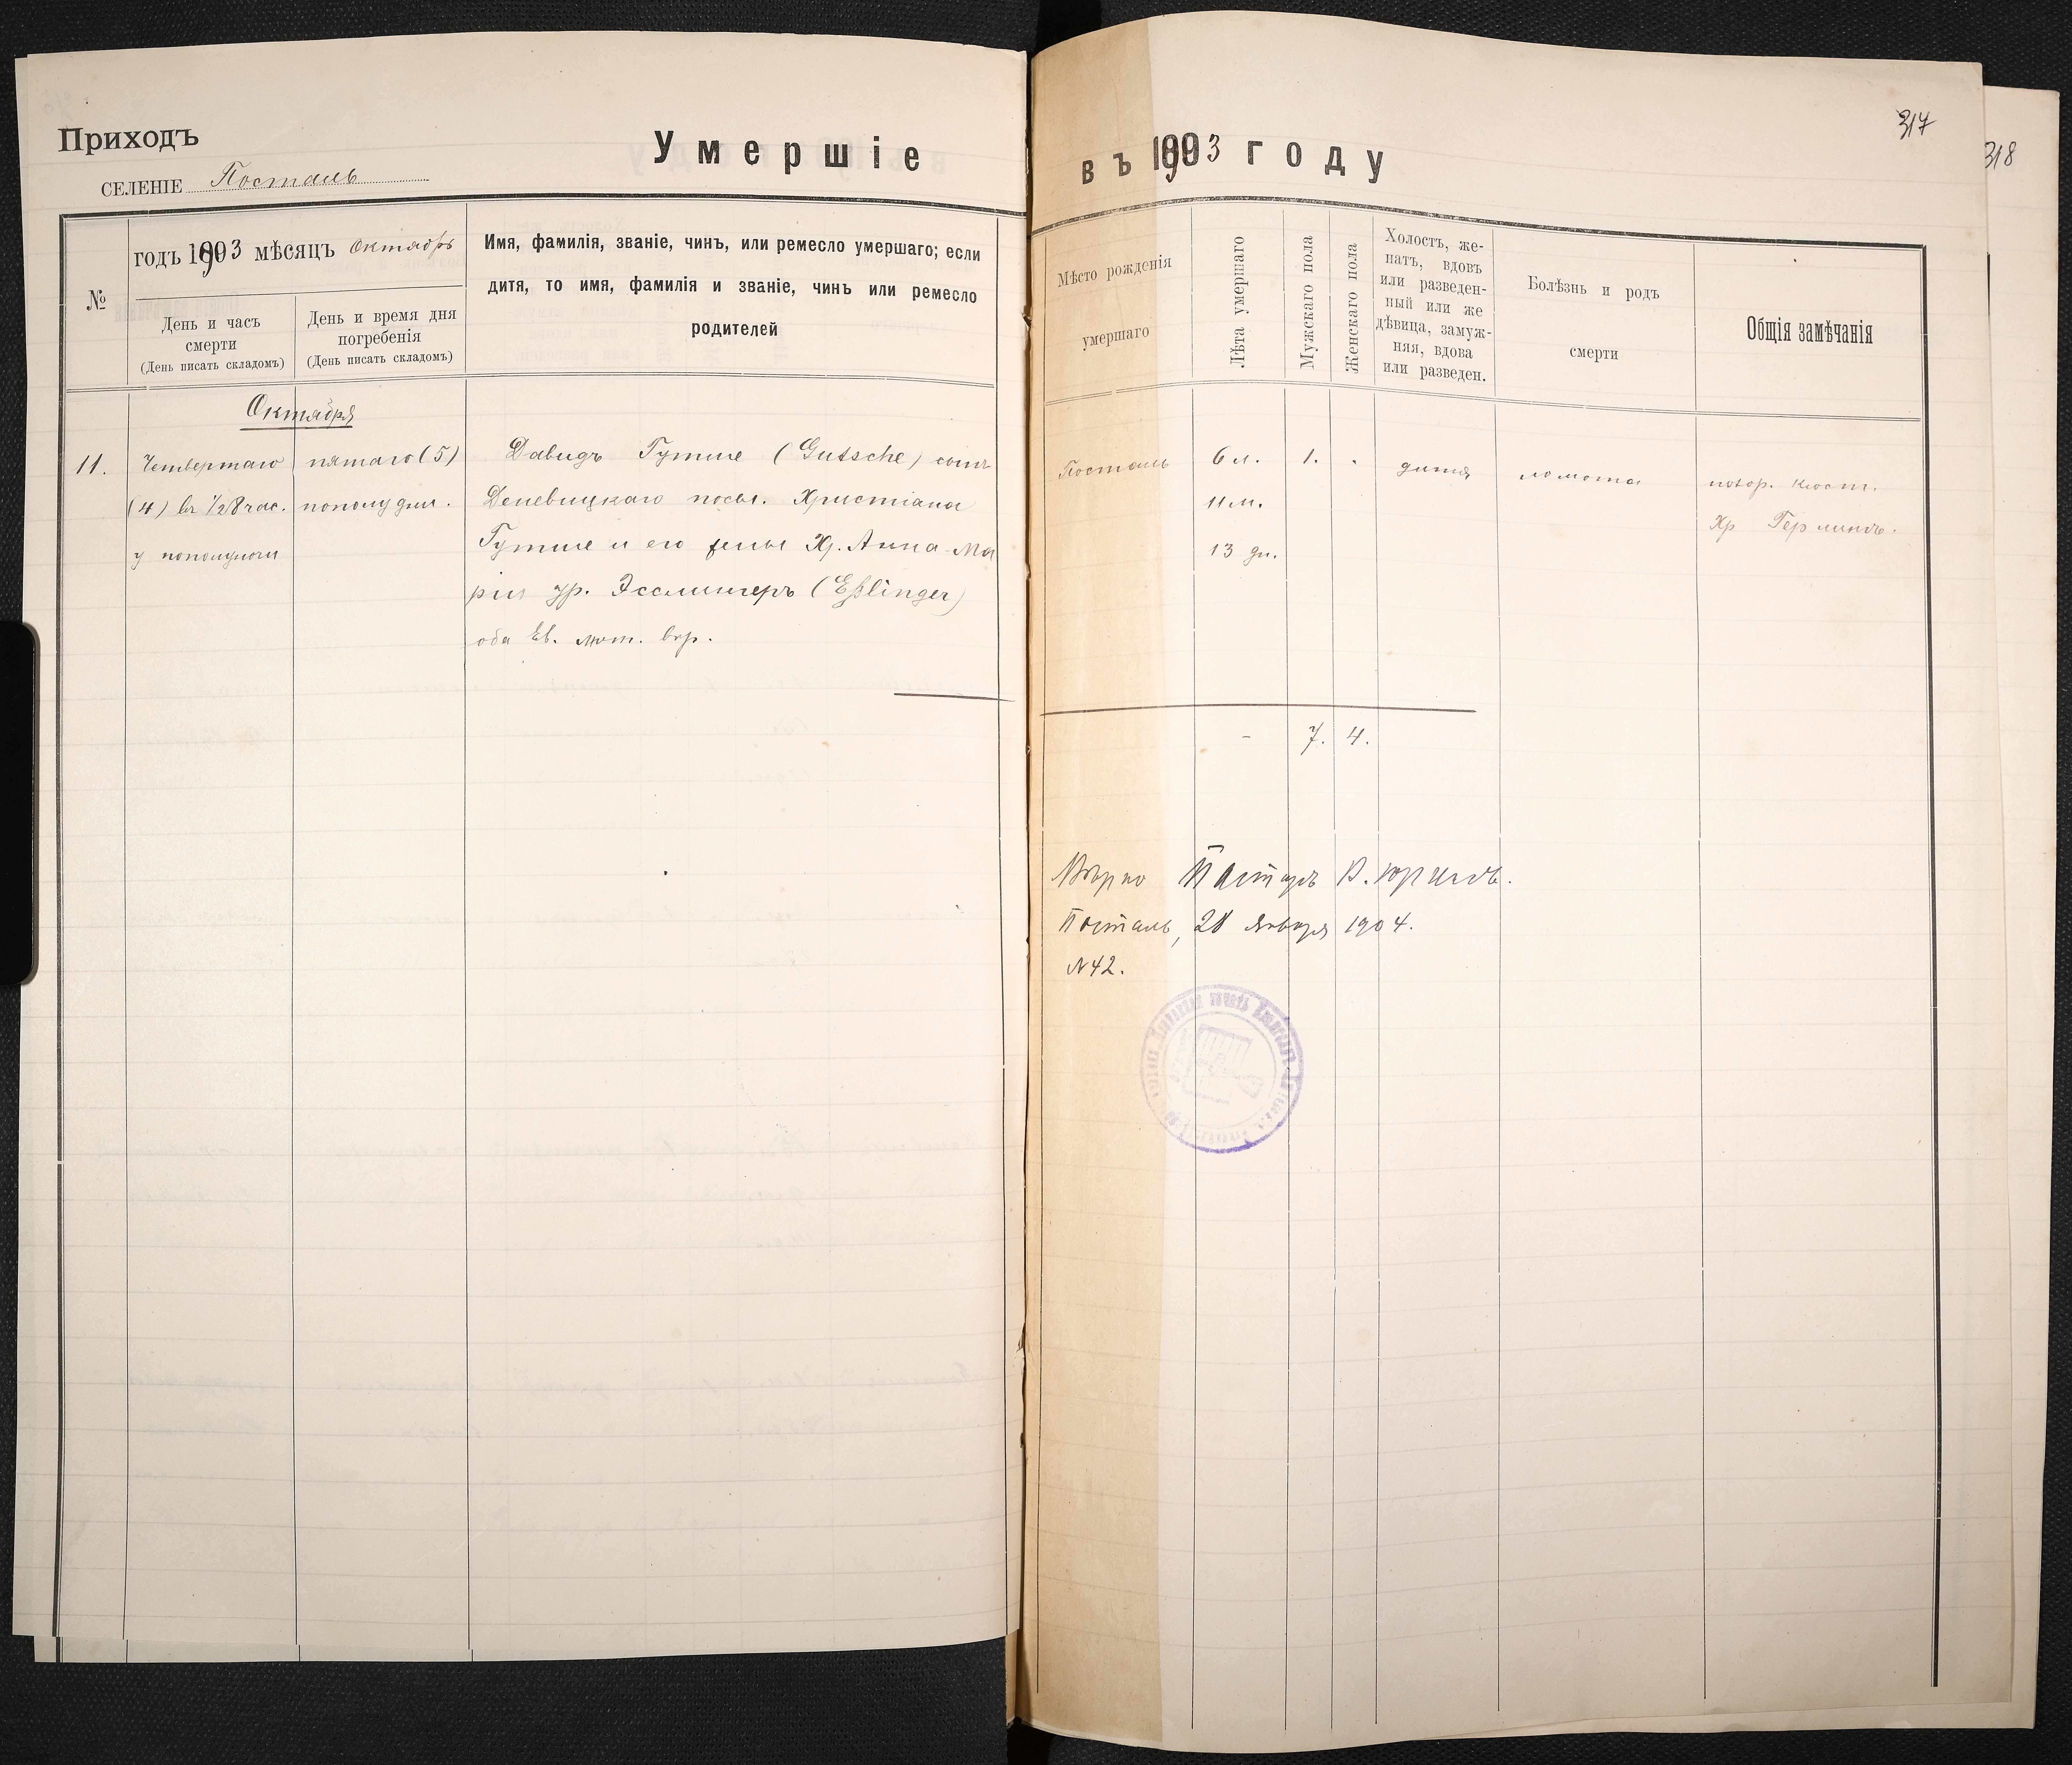 Приходъ
СЕЛЕНІЕ Посталь
Умершіе
въ 1903 году
317
318
№
годъ 1903 мѣсяцъ Октябрь
День и часъ
смерти
(День писать складомъ)
День и время дня
погребенія
(День писать складомъ)
Имя, фамилія, званіе, чинъ, или ремесло умершаго; если
дитя, то имя, фамилія и званіе, чинъ или ремесло
родителей
Мѣсто рожденія
умершаго
Лѣта умершаго
Мужскаго пола
Женскаго пола
Холостъ, же-
натъ, вдовъ
или разведен-
ный или же
дѣвица, замуж-
няя, вдова
или разведен.
Болѣзнь и родъ
смерти
Общія замѣчанія
Октября
11.
Четвертаго
(4) въ ½8 час.
у пополуночи
пятаго (5)
пополудни.
Давидъ Гутше (Gutsche) сынъ
Деневицкаго посел. Христіана
Гутше и его жены Хр. Анна-Ма
ріи ур. Эсслингеръ (Eßlinger)
оба Ев. лют. вѣр.
Посталь
6 л.
11 м.
13 дн.
1.
дитя
ломота
похор. кюст.
Хр
- 7. 4.
Вѣрно Пасторъ
Посталь, 28 Января 1904.
N 42.